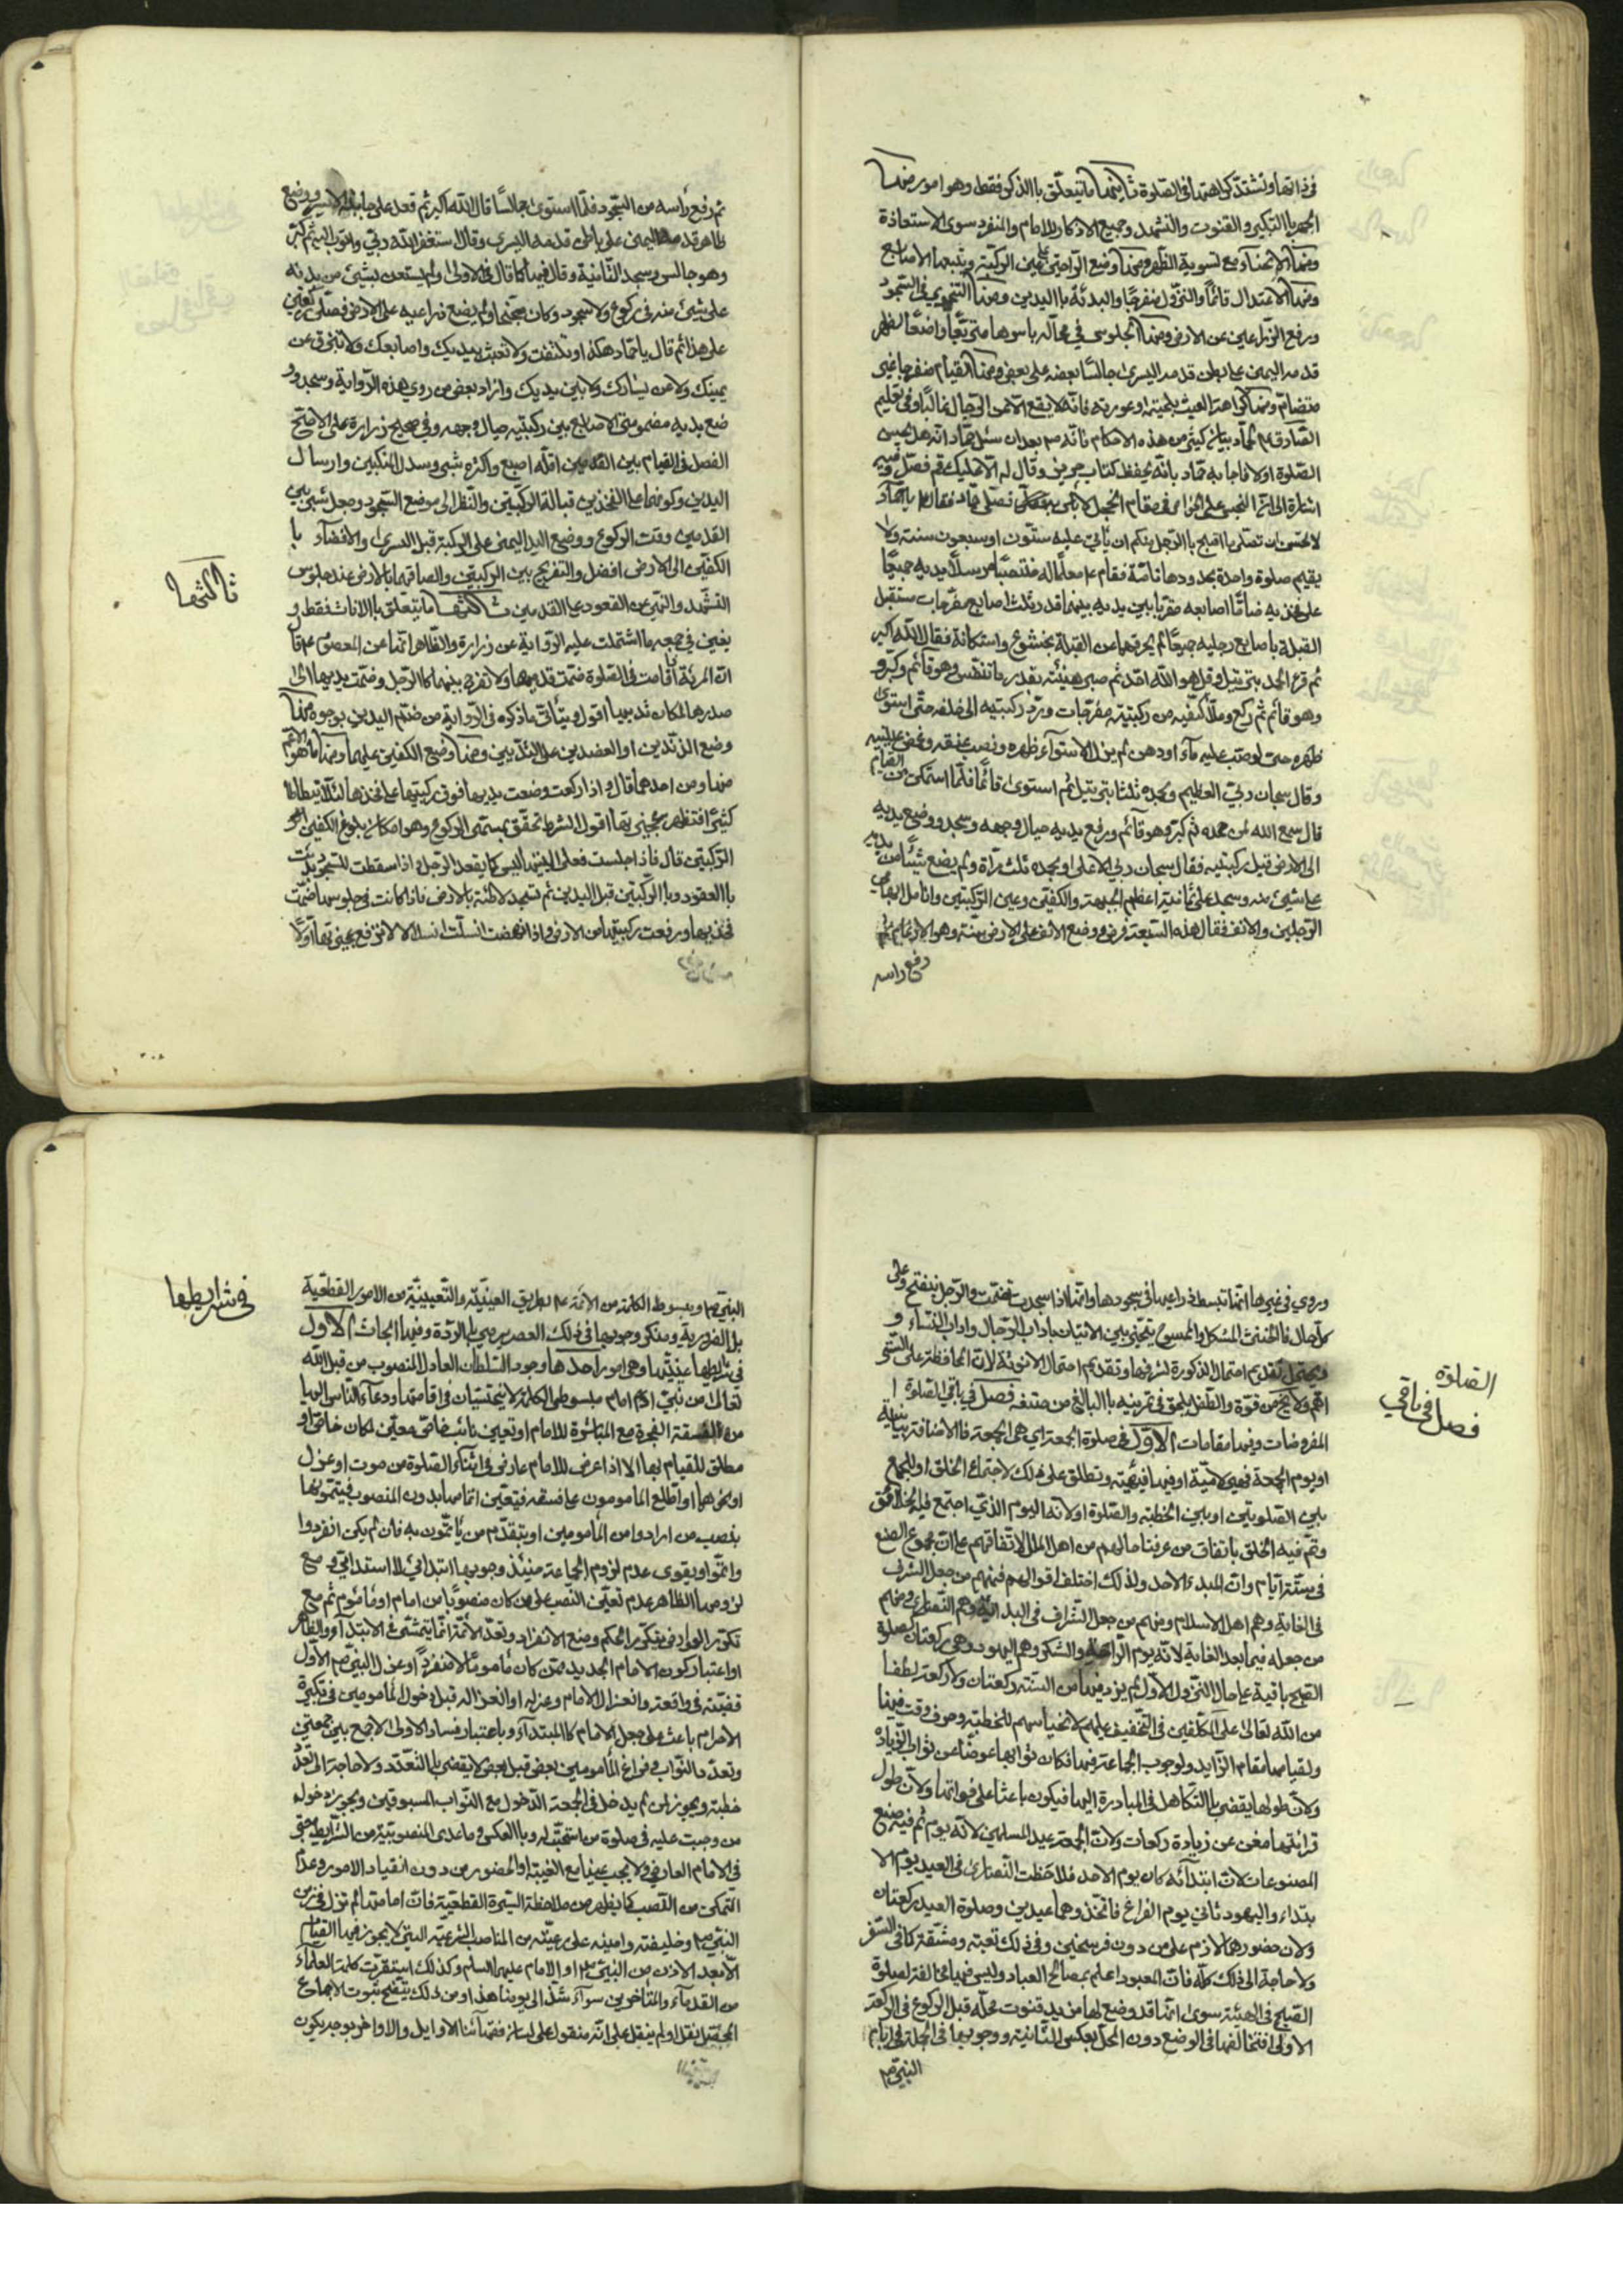 في ذاتها وتشتد كراهتها في الصلوة ثانيها ما يتعلق بالذكر فقط وهو امور منها
الجهر بالتكبير والقنوت والتشهد وجميع الاذكار للامام والمنفرد سوى الاستعاذة
ومنها الانحناء مع تسوية الظهر ومنها وضع الراحتين على عين الركبة وتتبعها الاصابع
ومنها الاعتدال قائما والنزول منفرجا والبدئة باليدين ومنها التنحي في السجود
ورفع الذراعين عن الارض ومنها الجلوس في محاله باسرها متربعا واضعا لظهر
قدمه اليمنى على بطن قدمه اليسرى جالسا بعضه على بعض ومنها القيام منفرجا غير
متضام ومنها كراهة العبث بلحيته او عورته فانه لا يقع الا من الرجال غالبا وفي تعليم
الصادق ع لحماد بيان كثير من هذه الاحكام فانه ع بعد ان سئل حماد انه هل يحسن
الصلوة اولا فاجابه حماد بانه يحفظ كتاب حريز وقال له لا عليك قم فصل وفيه
فصلى حماد فقال ع يا حماد
لا تحسن ان تصلى ما اقبح بالرجل منكم ان ياتي عليه ستون او سبعون سنة ولا
يقيم صلوة واحدة بحدودها تامة فقام ع معلما له منتصبا مرسلا يديه جميعا
على فخذيه ضاما اصابعه مقربا بين يديه بينهما قدر ثلث اصابع مفرجات مستقبل
القبلة باصابع رجليه جميعا لم يحرفهما عن القبلة بخشوع واستكانة فقال الله اكبر
ثم قرء الحمد بترتيل وقل هو الله احد ثم صبر هنيئة بقدر ما تنفس وهو قائم وكبر و
وهو قائم ثم ركع وملأ كفيه من ركبتيه مفرجات ورد ركبتيه الى خلفه حتى استوى
ظهره حتى لو صب عليه ماء او دهن لم يزل لاستوآء ظهره ونصب عنقه وغمض عينيه
وقال سبحان ربي العظيم وبحمده ثلثا بترتيل ثم استوى قائما فلما استمكن من القيام
قال سمع الله لمن حمده ثم كبر وهو قآئم ورفع يديه حيال وجهه وسجد ووضع يديه
الى الارض قبل ركبتيه فقال سبحان ربي الاعلى وبحمده ثلث مرآة ولم يضع شيئا من بدنه
على شيئ منه وسجد على ثمانية اعظم الجبهة والكفين وعين الركبتين وانامل ابهامي
الرجلين والانف فقال هذه السبعة فرض ووضع الانف على الارض سنة وهو الارغام ثم
رفع راسه
ثم رفع رأسه من السجود فلما استوى جالسا قال الله اكبر ثم قعد على جانبه الايسر ووضع
ظاهر قدمه اليمنى على باطن قدمه اليسرى وقال استغفر الله ربي واتوب اليه ثم كبر
وهو جالس وسجد الثانية وقال فيها كما قال في الاولى ولم يستعن بشيئ من بدنه
على شيئ منه في ركوع ولا سجود وكان مجنحا ولم يضع ذراعيه على الارض فصلى ركعتين
على هذا ثم قال يا حماد هكذا ولا تلتفت ولا تعبث بيديك واصابعك ولا تبزق عن
يمينك ولا عن يسارك ولا بين يديك وازاد بعض من روى هذه الرواية وسجد و
ضع يديه مضمومتى الاصابع بين ركبتيه حيال وجهه وفي صحيح زرارة على الاصح
الفصل في القيام بين القدمين اقله اصبع واكثره شبر وسدل المنكبين وارسال
اليدين وكونهما على الفخذين قبالة الركبتين والنظر الى موضع السجود وجعل شبر بين
القدمين وقت الركوع ووضع اليد اليمنى على الركبة قبل اليسرى والافضآء با
الكفين الى الارض افضل والتفريج بين الركبتين والصاقهما بالارض عند جلوس
التشهد والنهى عن القعود على القدمين ثالثها ما يتعلق بالاناث فقط و
يغني في جمعه ما اشتملت عليه الرواية عن زرارة والظاهر انها عن المعصوم ع قا
ان المرئة اذا قامت في الصلوة ضمت قدميها ولا تفرج بينهما كالرجل وضمت يديها الى
صدرها لمكان ثدييها اقول ويتأتى ما ذكره في الرواية من ضم اليدين بوجوه منها
وضع الزندين او العضدين على الثديين ومنها وضع الكفين عليهما ومنها ما هو الاعم
منهما ومن احدهما قال واذا ركعت وضعت يديها فوق ركبتيها على فخذها لئلا تبطأطأ
كثيرا فتظهر عجيزتها اقول الشرط تحقق مسمى الركوع وهو امكان بلوغ الكفين نحو
الركبتين قال فاذا جلست فعلى اليتيها ليس كما يقعد الرجل واذا سقطت للسجود بدئت
بالعقود وبالركبتين قبل اليدين ثم تسجد لاطئة بالارض فاذا كانت في جلوسها ضمت
فخذيها ورفعت ركبتيها من الارض واذا نهضت انسلت انسلالا لا ترفع عجيزتها اولا
ثالثها
وروى في غيرها انها تبسط ذراعيها في سجودها وانها اذا سجدت تضممت والرجل يتفتح وعلى
كل حال فالخنثى المشكل والممسوح يتخير بين الاتيان باداب الرجال واداب النساء و
ويحتمل تقديم احتمال الذكورة لشرفها وتقديم احتمال الانوثة لان المحافظة على الستر
اهم ولا يخ من قوة والطفل يلحق في تمرينه بالبالغ من صنفه فصل في باقي الصلوة ا
المفروضات وفيها مقامات الاول في صلوة الجمعة اي هي الجمعة فالاضافة بيانية
او يوم الجمعة فهي لامية او فيها فيئية وتطلق على ذلك لاجتماع الخلق او للجمع
بين الصلوتين او بين الخطبة والصلوة او لانه اليوم الذي اجتمع فيه الخلائق
وتم فيه الخلق باتفاق من عرفنا حالهم من اهل الملل لاتفاقهم على ان مجموع الصنع
في ستة ايام وان المبدء الاحد ولذلك اختلف اقوالهم فمنهم من جعل الشرف
في الغاية وهم اهل الاسلام ومنهم من جعل الشرف في البداية وهم النصارى ومنهم
من جعله فيما بعد الغاية لانه يوم الراحة والشكر وهم اليهود وهي ركعتان كصلوة
الصبح باقية على حال النزول الاول لم يزد فيها من السنة ركعتان ولا ركعة لطفا
من الله تعالى على المكلفين في التخفيف عليهم لانحباسهم للخطبة وصرف وقت فيها
ولقيامها مقام الزايد ولوجوب الجماعة فيها فكان ثوابها عوضا عن ثواب الزيادة
ولان طولها يقضى بالتكاهل في المبادرة اليها فيكون باعثا على فواتها ولان طول
قرائتها مغن عن زيادة ركعات ولان الجمعة عيد المسلمين لانه يوم تم فيه صنع
المصنوعات لان ابتدائه كان يوم الاحد فلاحظت النصارى في العيد يوم الا
بتداء واليهود ثاني يوم الفراغ فاتخذوهما عيدين وصلوة العيد ركعتان
ولان حضورها لازم على من دون فرسخين وفي ذلك تعبة ومشقة كما في السفر
ولا حاجة الى ذلك كله فان المعبود اعلم بمصالح العباد وليس فيها مخالفة لصلوة
الصبح في الهيئة سوى انها قد وضع لها مزيد قنوت محله قبل الركوع في الركعة
الاولى افتخالفها في الوضع دون المحل بعكس الثانية ووجوبها في الجملة في ايام
النبي ص
الصلوة
فصل في باقي
النبي ص وبسوط الكلمة من الائمة ع بطريق العينية والتعيينية من الامور القطعية
بل الضرورية ومنكر وجوبها في ذلك العصر يرمى بالردة وفيها ابحاث الاول
في شرايطها عينيتها وهي امور احدها وجود السلطان العادل المنصوب من قبل الله
تعالى من نبي او امام مبسوطى الكلمة لا يخشيان في اقامتها ودعآء الناس اليها
من الفسقة الفجرة مع المباشرة للامام او تعيين نائب خاص معين لمكان خاص او
مطلق للقيام بها الا اذا عرض للامام عارض في اثنآء الصلوة من موت او عزل
او نحوهما او اطلع المأمومون على فسقه فيتعين اتمامها بدون المنصوب فيتمونها
بنصب من ارادوا من المأمومين او يتقدم من يأتمون به فان لم يكن انفردوا
واتموا ويقوى عدم لزوم الجماعة حينئذ وجوبها ابتدائي لا استدامي ومع
لزومها الظاهر عدم تعين النصب على من كان منصوبا من امام او مأموم ثم مع
تكرر العوارض يتكرر الحكم ومنع الانفراد وتعدد الائمة انما يتمشى في الابتدآء والظاهر
او اعتبار كون الامام الجديد ممن كان مأموما لا منفردا وعزل النبي ص الاول
قضية في واقعة وانعزال الامام وعزله او انعزاله قبل دخول المأمومين في تكبيرة
الاحرام باعث على جعل الامام كالمبتدآء وباعتبار فساد الاولى لا جمع بين جمعتين
وتعدد النواب وفراغ المأمومين بعض قبل بعض لا يقضى بالتعدد ولا حاجة الى تعدد
خطبة ويجوز لمن لم يدخل في الجمعة الدخول مع النواب المسبوقين ويجوز دخول
من وجبت عليه في صلوة من استحبت له وبالعكس وما عدى المنصوبية من الشرايط يعتبر
في الامام العارضي ولا يجب عينا مع الغيبة او الحضور من دون انقياد الامور وعدم
التمكن من النصب كما يظهر من ملاحظة السيرة القطعية فان امامتها لم تزل في زمن
النبي ص وخليفته وامينه على رعيته من المناصب الشرعية التي لا يجوز فيها القيام
الا بعد الاذن من النبي ص او الامام عليهما السلام وكذلك استقرت كلمة العلمآء
من القدمآء والمتأخرين سوآء شذ الى يومنا هذا ومن ذلك يتضح ثبوت الاجماع
المحصل بقل او لم ينقل على انه منقول على لسان فقهآئنا الاوايل والاواخر بوجه يكون
في شرايطها